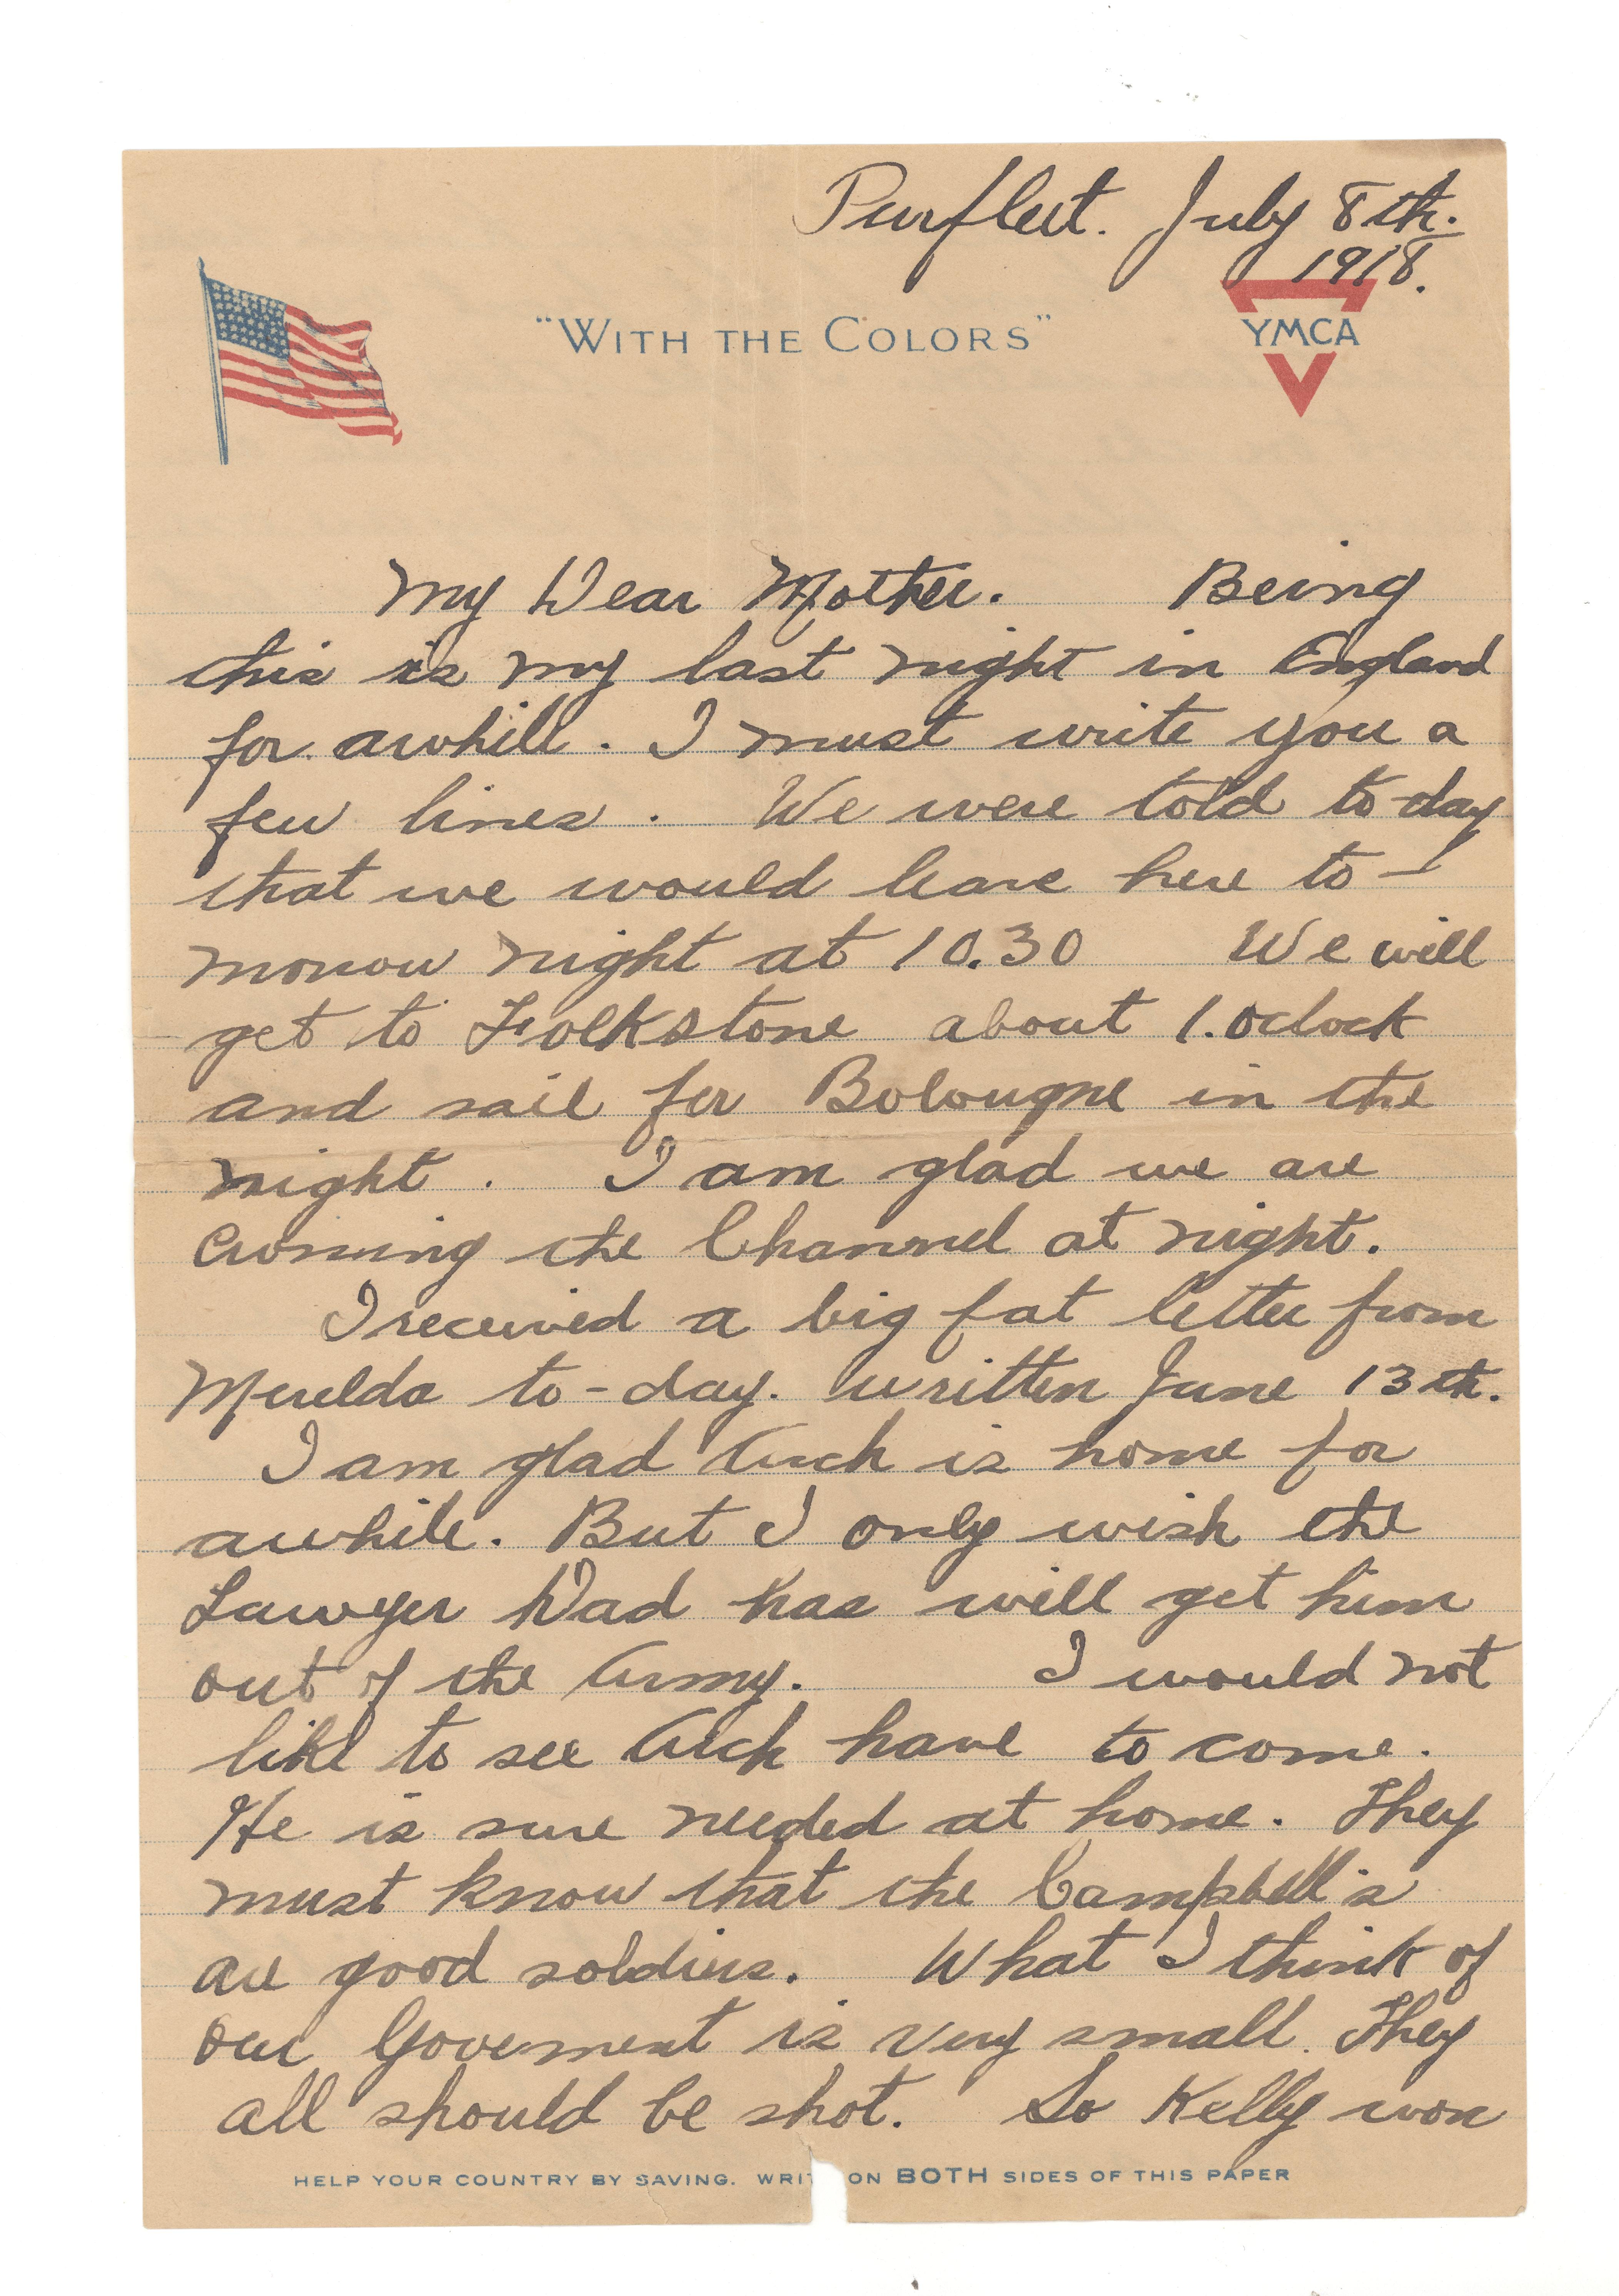 Purfleet. July 8th.
1918.
"WITH THE COLORS"
YMCA
My Dear Mother. Being
this is my last night in England
for awhile. I must write you a
few lines. We were told to-day
that we would leave here to-
morrow night at 10.30 We will
get to Folkstone about 1.oclock
and sail for Bolougne in the
night. I am glad we are
crossing the Channel at night.
I received a big fat letter from
to-day. written June 13th.
I am glad Arch is home for
awhile. But I only wish the
Lawyer Dad has will get him
out of the Army. I would not
like to see Arch have to come.
He is sure needed at home. They
must know that the Campbell's
are good soldiers. What I think of
our Goverment is very small. They
all should be shot. So Kelly won
HELP YOUR COUNTRY BY SAVING. WRIT ON BOTH SIDES OF THIS PAPER